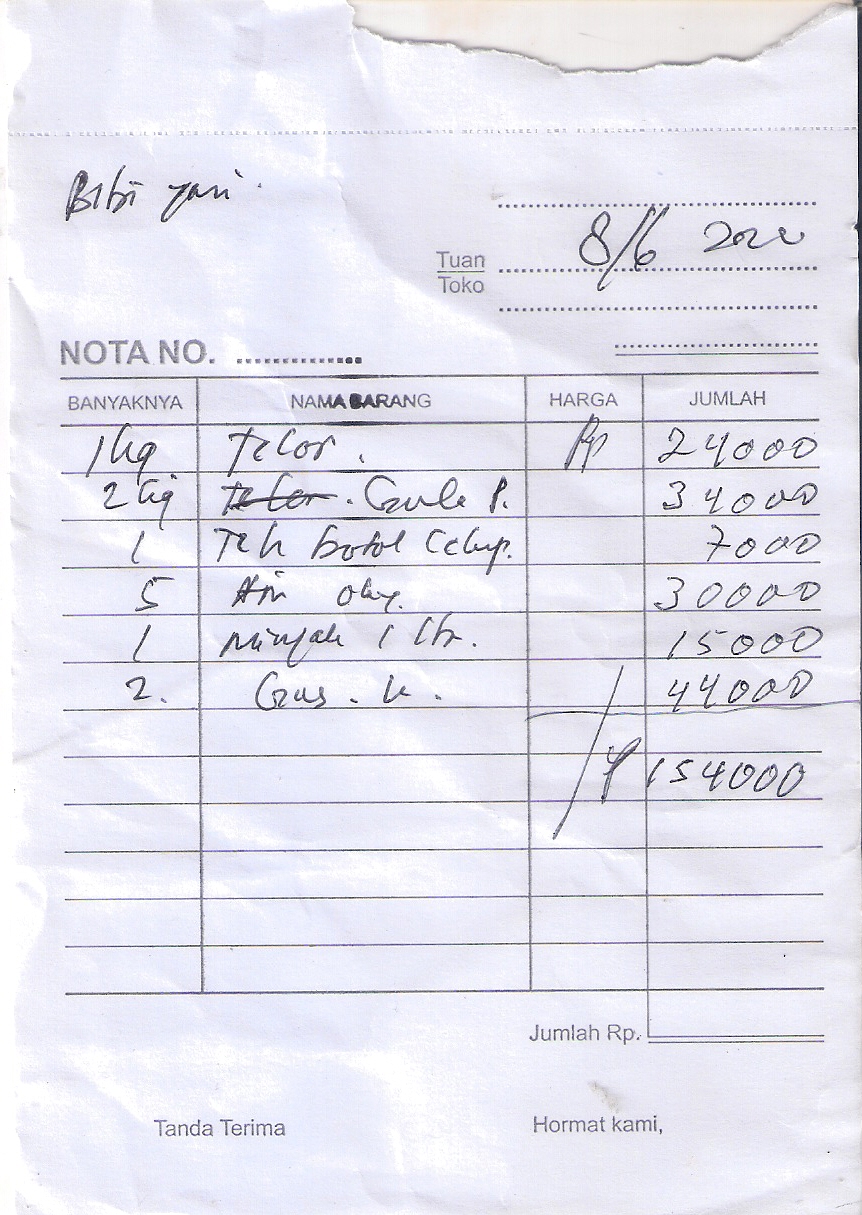 Bibi yani
8/6 2020
Tuan
Toko
NOTA NO. ...............
BANYAKNYA NAMA BARANG HARGA JUMLAH
1 kg Telor. Rp 24000
2 kg Telor. Gula P. 34000
1 Teh botol Celup. 7000
5 Air 30000
1 Minyak 1 ltr. 15000
2. Gas. k. 44000
Rp 154000
Jumlah Rp.
Tanda Terima Hormat kami,